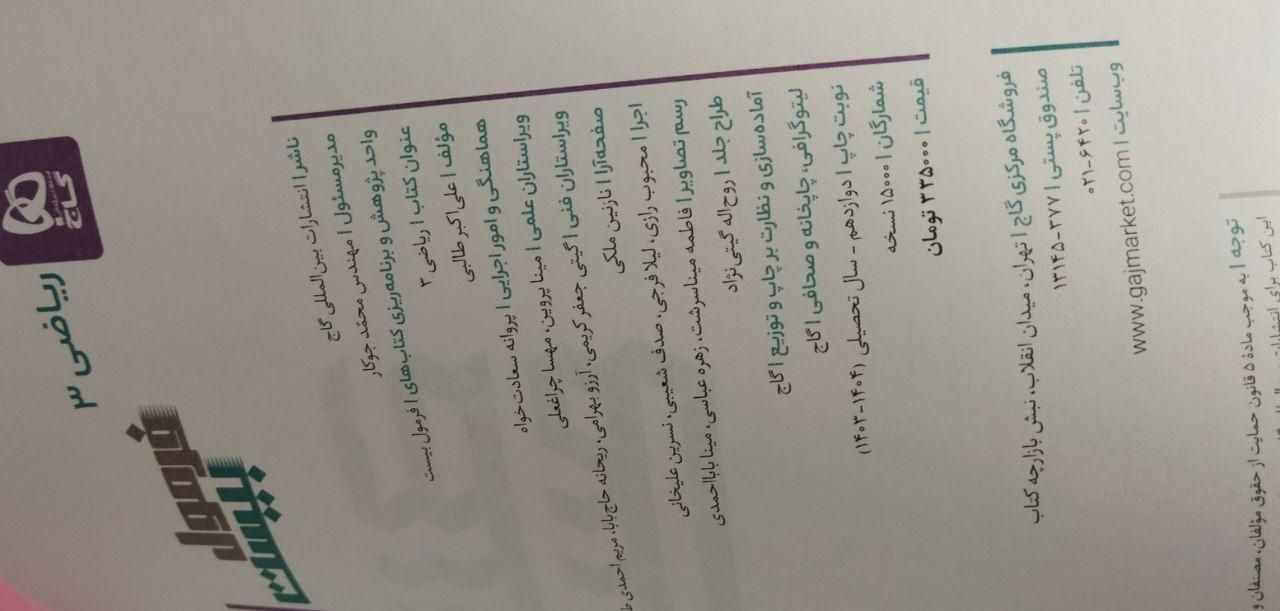 گاج
ریاضی ۳
فرمول
بیست
ناشر | انتشارات بین‌المللی گاج
مدیرمسئول | مهندس محمد جوکار
واحد پژوهش و برنامه‌ریزی کتاب‌های | فرمول بیست
عنوان کتاب | ریاضی ۳
مؤلف | علی‌اکبر طالبی
هماهنگی و امور اجرایی | پروانه سعادت‌خواه
ویراستاران علمی | مینا پروین، مهسا چراغعلی
ویراستاران فنی | گیتی جعفر کریمی، آرزو بهرامی، ریحانه حاج‌بابا، مریم احمدی
صفحه‌آرا | نازنین ملکی
اجرا | محبوب رازی، لیلا فرجی، صدف شعیبی، نسرین علیخانی
رسم تصاویر | فاطمه میناسرشت، زهره عباسی، مینا بابااحمدی
طراح جلد | روح‌اله گیتی‌نژاد
آماده‌سازی و نظارت بر چاپ و توزیع | گاج
لیتوگرافی، چاپخانه و صحافی | گاج
نوبت چاپ | دوازدهم - سال تحصیلی (۱۴۰۴-۱۴۰۳)
شمارگان | ۱۵۰۰۰ نسخه
قیمت | ۳۳۵۰۰۰ تومان
فروشگاه مرکزی گاج | تهران، میدان انقلاب، نبش بازارچه کتاب
صندوق پستی | ۳۷۷-۱۳۱۴۵
تلفن | ۶۴۲۰-۰۲۱
وب‌سایت | www.gajmarket.com
توجه | به موجب مادهٔ ۵ قانون حمایت از حقوق مؤلفان، مصنفان و
این کتاب برای انتشارات